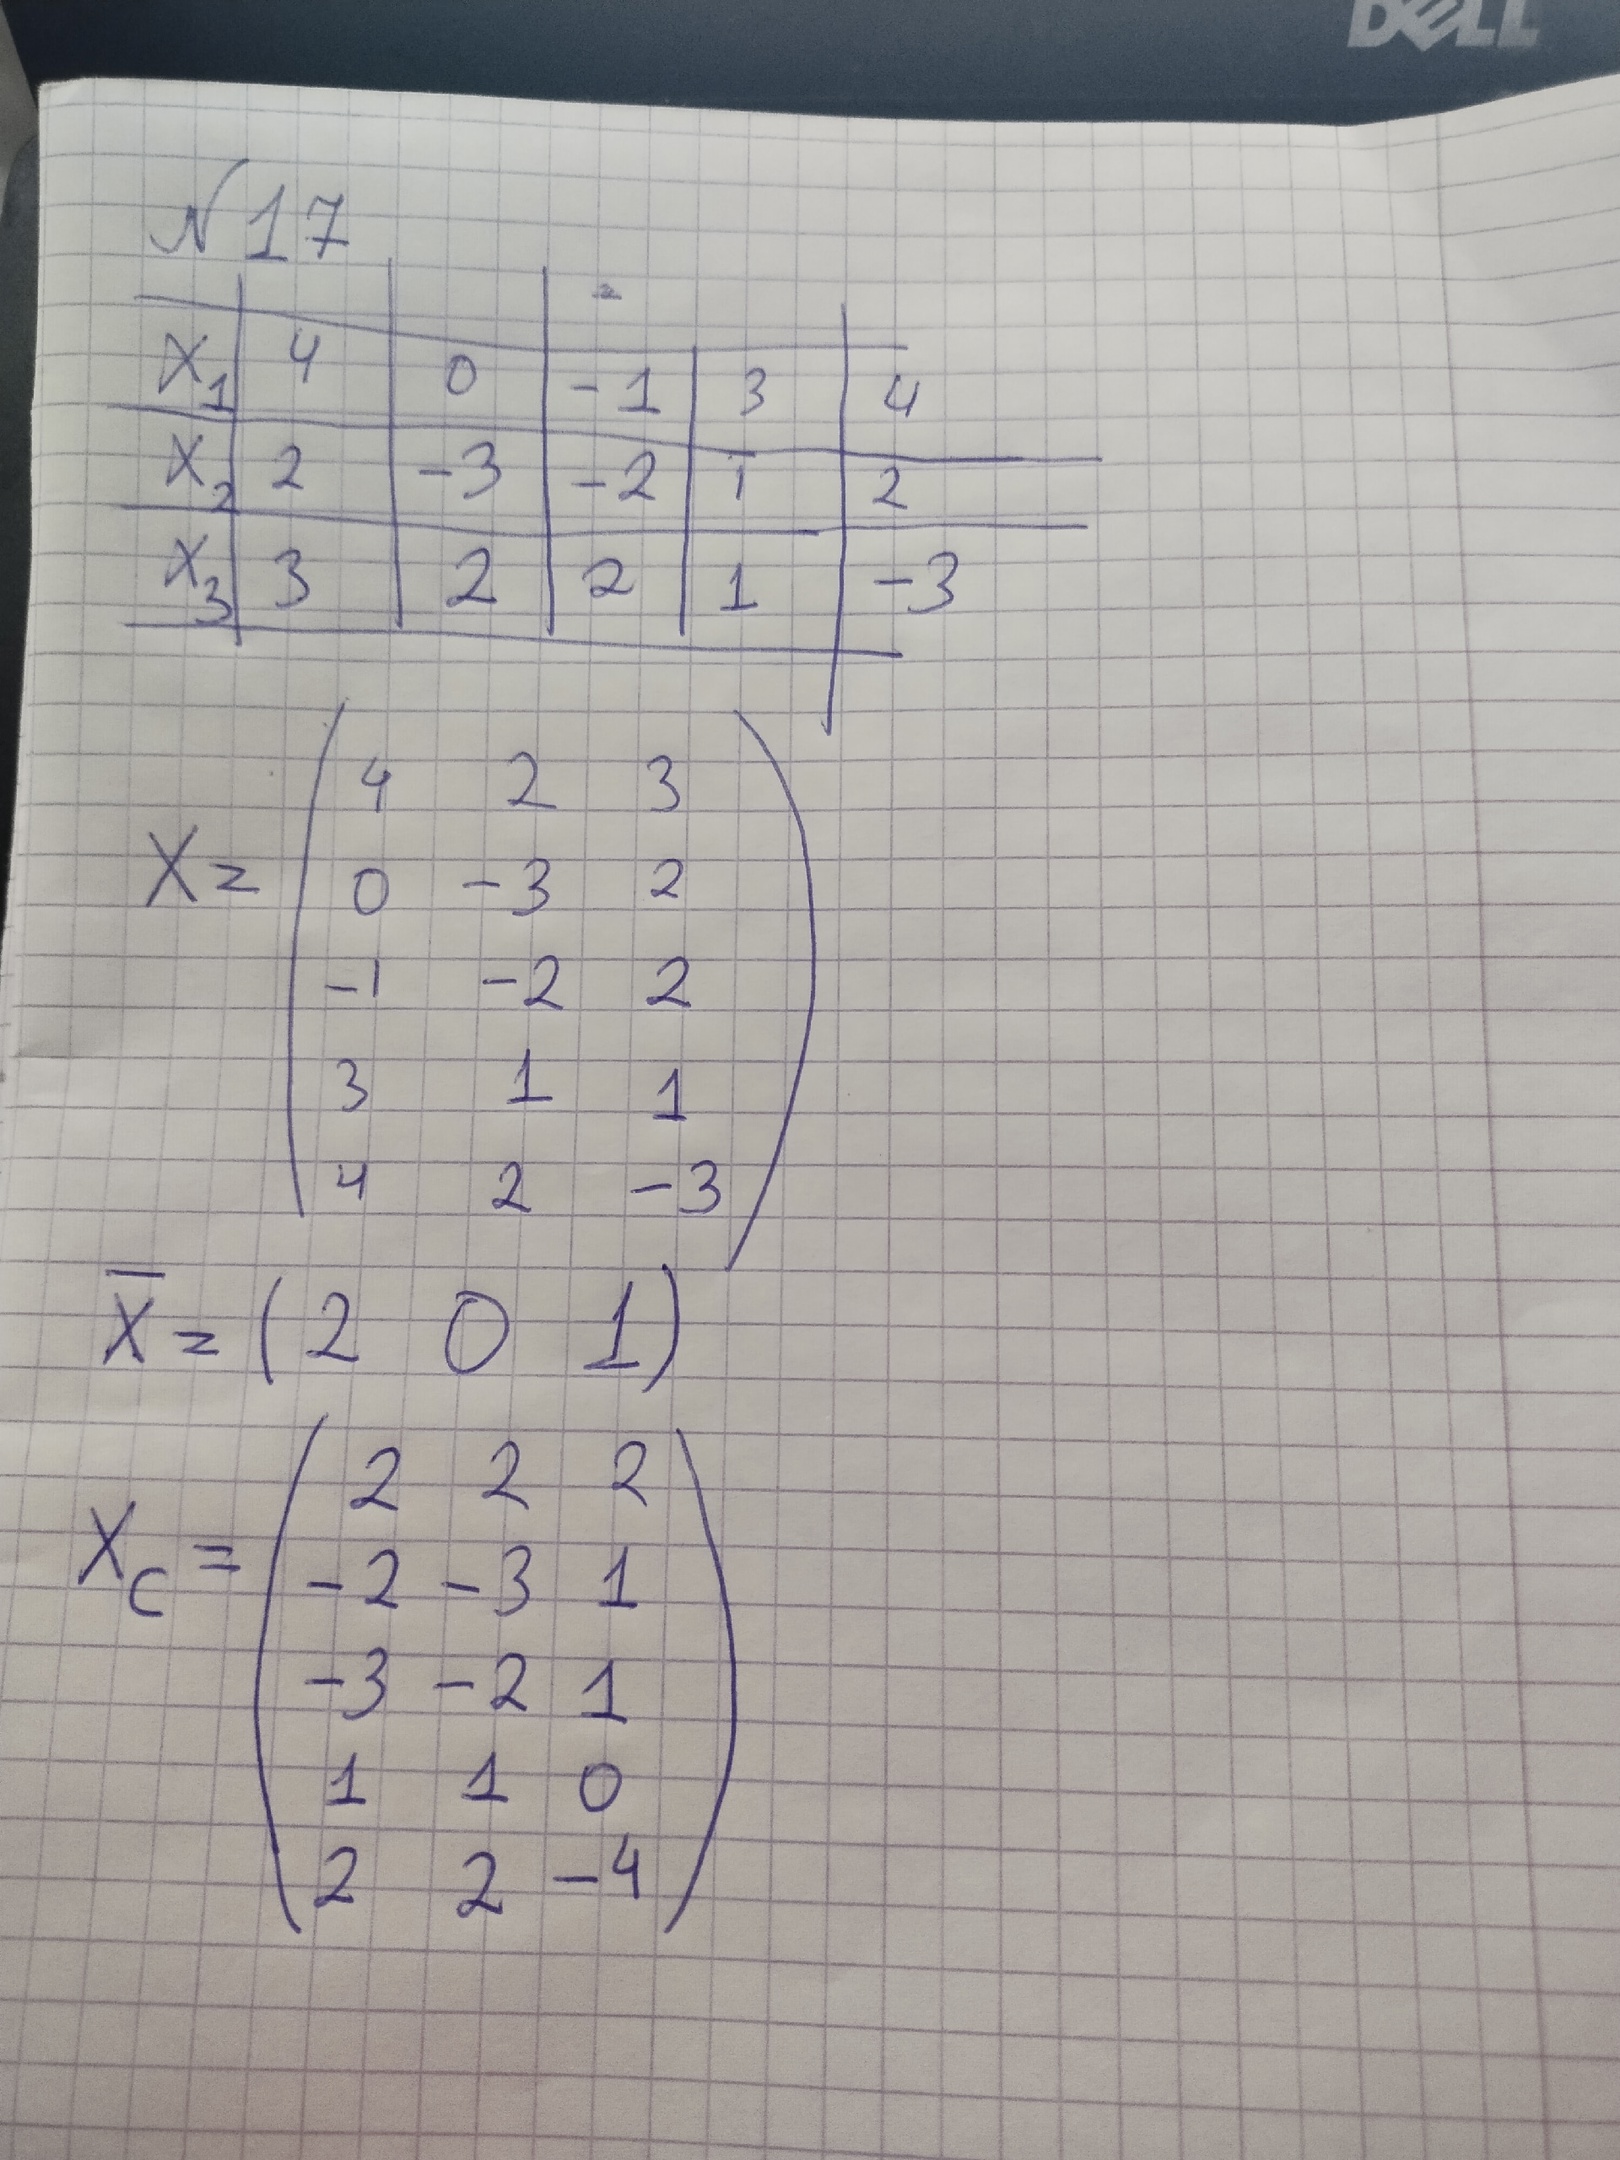 DELL
№ 17
X₁ 4 0 -1 3 4
X₂ 2 -3 -2 1 2
X₃ 3 2 2 1 -3
4 2 3
X= 0 -3 2
-1 -2 2
3 1 1
4 2 -3
X̄ = (2 0 1)
2 2 2
X_C = -2 -3 1
-3 -2 1
1 1 0
2 2 -4